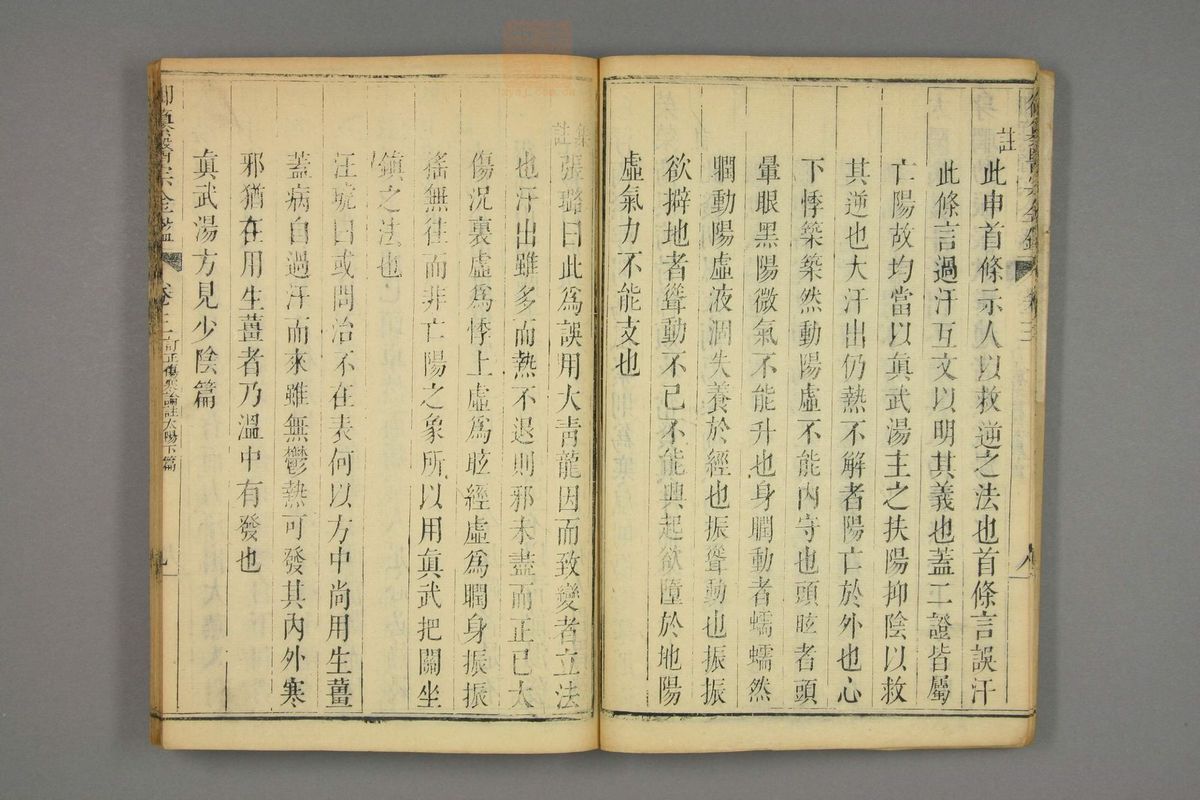 註
此申首條示人以救逆之法也首條言誤汗
此條言過汗互文以明其義也蓋二證皆屬
亡陽故均當以眞武湯主之扶陽抑陰以救
其逆也大汗出仍熱不解者陽亡於外也心
下悸築築然動陽虛不能內守也頭眩者頭
暈眼黑陽微氣不能升也身瞤動者蠕蠕然
瞤動陽虛液涸失養於經也振聳動也振振
欲擗地者聳動不已不能興起欲墮於地陽
虛氣力不能支也
集註
張璐曰此爲誤用大青龍因而致變者立法
也汗出雖多而熱不退則邪未盡而正已大
傷況裏虛爲悸上虛爲眩經虛爲瞤身振振
搖無往而非亡陽之象所以用眞武把關坐
鎮之法也
汪琥曰或問治不在表何以方中尚用生薑
蓋病自過汗而來雖無鬱熱可發其內外寒
邪猶在用生薑者乃溫中有發也
眞武湯方見少陰篇
御纂醫宗金鑑 卷三 訂正傷寒論註太陽下篇